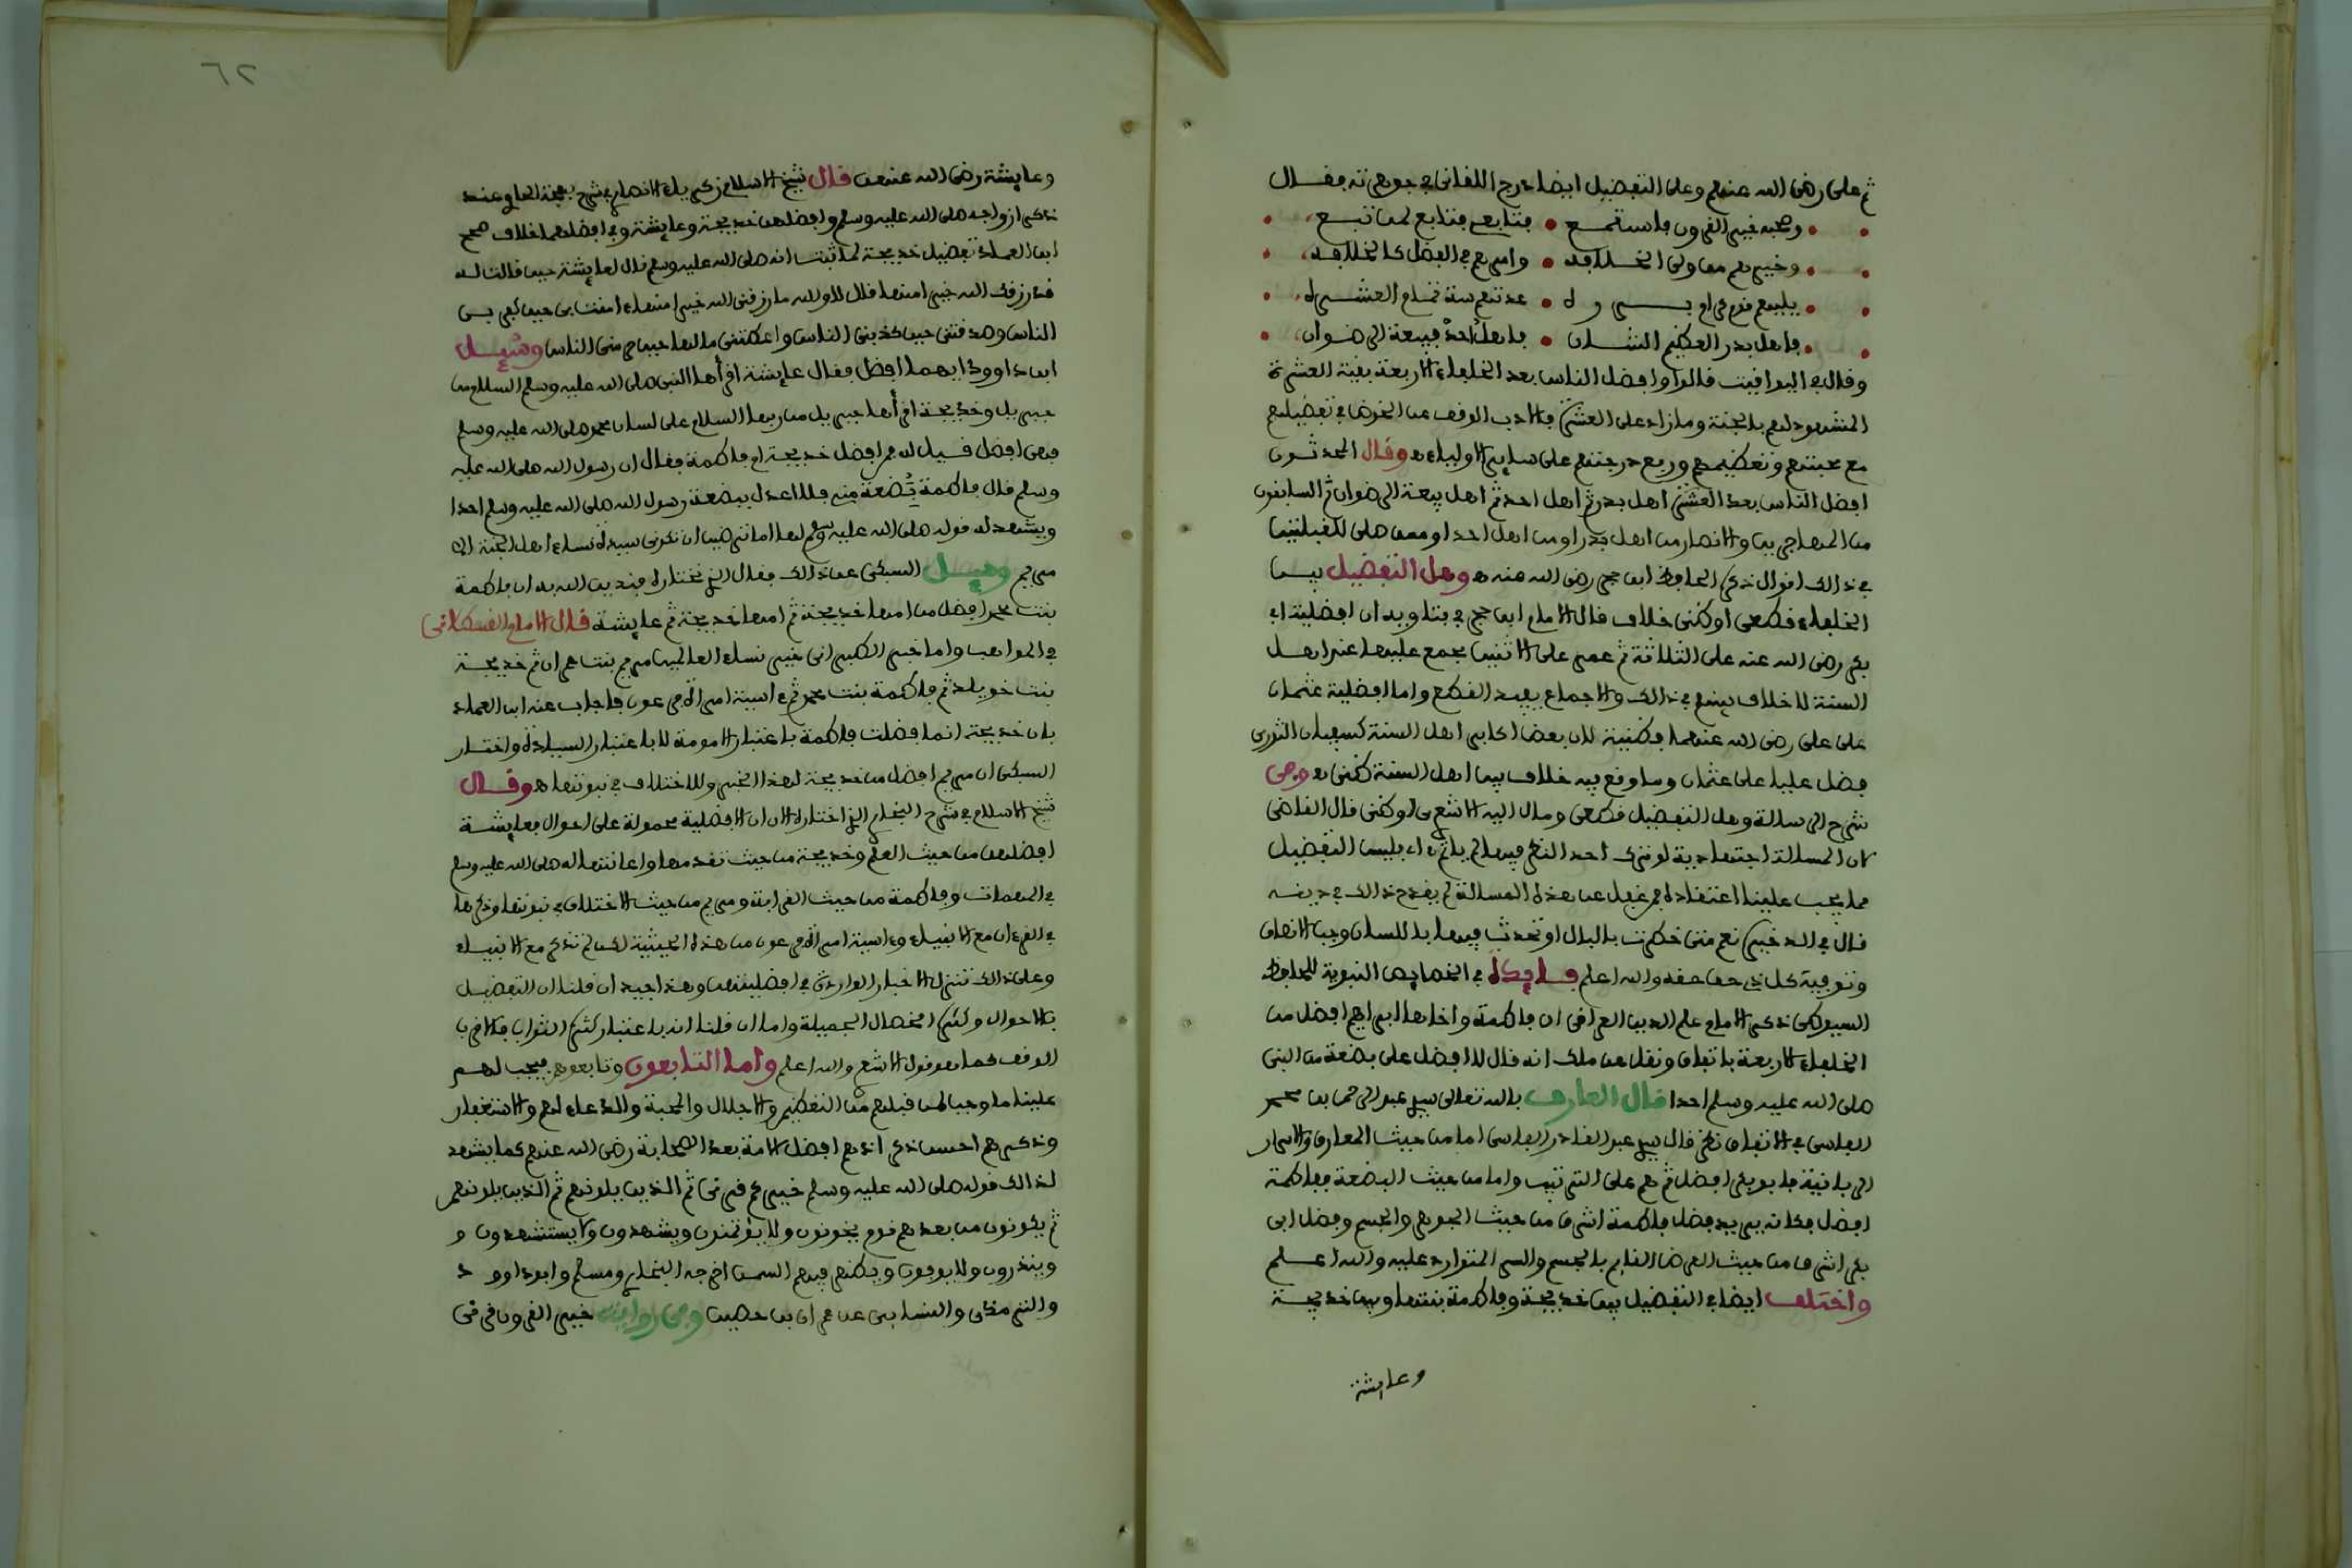 ثم على رضى الله عنهم وعلى التفضيل ايضا درج اللقانى فى جوهرته فقال
وصحبه خير القرون فاستمع • فتابعى فتابع لمن تبع
وخيرهم من ولى الخلافه • وامرهم فى الفضل كالخلافه
يليهم قوم كرام بررة • عدتهم ست تمام العشرة
فاهل بدر العظيم الشان • فاهل احد فبيعة الرضوان
وقال فى اليواقيت قالوا وافضل الناس بعد الخلفاء الاربعة بقية العشرة
المشهود لهم بالجنة وما زاد على العشرة فالادب الوقف عن الخوض فى تفضيلهم
مع محبتهم وتعظيمهم ورفع درجتهم على ساير الاولياء ه وقال المحدثون
افضل الناس بعد العشرة اهل بدر ثم اهل احد ثم اهل بيعة الرضوان ثم السابقون
من المهاجرين والانصار من اهل بدر او من اهل احد او ممن صلى للقبلتين
فى ذالك اقوال ذكره الحافظ ابن حجر رضى الله عنه ه وهل التفضيل بين
الخلفاء قطعى او ظنى خلاف قال الامام ابن حجر فى فتاويه ان افضلية ابى
بكر رضى الله عنه على الثلاثة ثم عمر على الاثنين مجمع عليها عند اهل
السنة لا خلاف بينهم فى ذالك والاجماع يفيد القطع واما افضلية عثمان
على على رضى الله عنهما فظنية لان بعض اكابر اهل السنة كسفيان الثورى
فضل عليا على عثمان وما وقع فيه خلاف بين اهل السنة ظنى ه وفى
شرح الرسالة وهل التفضيل قطعى ومال اليه الاشعرى او ظنى قال القاضى
لان المسالة اجتهادية لو ترك احد النظر فيها لم ياثم اه فليس التفضيل
مما يجب علينا اعتقاده فمن غفل عن هذه المسالة لم يقدح ذالك فى دينه
قال فى الذخيرة نعم متى خطرت بالبال او تحدث فيها باللسان وجب الانصاف
وتوفية كل ذى حق حقه والله اعلم فايدة فى الخصايص النبوية للحافظ
السيوطى ذكر الامام علم الدين العراقى ان فاطمة واخاها ابراهيم افضل من
الخلفاء الاربعة باتفاق ونقل عن ملك انه قال لا افضل على بضعة من النبى
صلى الله عليه وسلم احدا قال العارف بالله تعالى سيدى عبد الرحمان بن محمد
الفاسى فى الاتفاق نظر قال سيدى عبد القادر الفاسى اما من حيث المعارف والاسرار
الربانية فابو بكر افضل ثم هم على الترتيب واما من حيث البضعة ففاطمة
افضل فكانه يريد فضل فاطمة اشرف من حيث الجوهر والجسم وفضل ابى
بكر اشرف من حيث العرض القايم بالجسم والسر المتوارد عليه والله اعلم
واختلف ايضا فى التفضيل بين خديجة وفاطمة بنتها وبين خديجة
وعايشة
٦٢
وعايشة رضى الله عنهن قال شيخ الاسلام زكرياء الانصارى فى شرح بهجة الحاوى عند
ذكر ازواجه صلى الله عليه وسلم وافضلهن خديجة وعايشة وفى افضلهما خلاف صحح
ابن العماد تفضيل خديجة لما ثبت انه صلى الله عليه وسلم قال لعايشة حين قالت له
قد رزقك الله خيرا منها فقال لا والله ما رزقنى الله خيرا منها ءامنت بى حين كفر بى
الناس وصدقتنى حين كذبنى الناس واعطتنى مالها حين حرمنى الناس وسئل
ابن داوود ايهما افضل فقال عايشة اقرأها النبى صلى الله عليه وسلم السلام من
جبريل وخديجة اقرأها جبريل من ربها السلام على لسان محمد صلى الله عليه وسلم
فهى افضل قيل له فمن افضل خديجة ام فاطمة فقال ان رسول الله صلى الله عليه
وسلم قال فاطمة بضعة منى فلا اعدل ببضعة رسول الله صلى الله عليه وسلم احدا
ويشهد له قوله صلى الله عليه وسلم لها اما ترضين ان تكونى سيدة نساء اهل الجنة الا
مريم وسئل السبكى عن ذالك فقال الذى نختاره وندين الله به ان فاطمة
بنت محمد افضل من امها خديجة ثم امها خديجة ثم عايشة قال الامام القسطلانى
فى المواهب واما خبر الطبرانى خير نساء العالمين مريم بنت عمران ثم خديجة
بنت خويلد ثم فاطمة بنت محمد ثم ءاسية امرأة فرعون فاجاب عنه ابن العماد
بان خديجة انما فضلت فاطمة باعتبار الامومة لا باعتبار السيادة واختار
السبكى ان مريم افضل من خديجة لهذا الخبر وللاختلاف فى نبوتها ه وقال
شيخ الاسلام فى شرح البخارى الذى اختاره الان ان الافضلية محمولة على احوال فعايشة
افضلهن من حيث العلم وخديجة من حيث تقدمها واعانتها له صلى الله عليه وسلم
فى المهمات وفاطمة من حيث القرابة ومريم من حيث الاختلاف فى نبوتها وذكرها
فى القرءان مع الانبياء وءاسية امرأة فرعون من هذه الحيثية لكن لم تذكر مع الانبياء
وعلى ذالك تتنزل الاخبار الواردة فى افضليتهن وهذا جيد ان قلنا ان التفضيل
بالاحوال وكثرة الخصال الجميلة واما ان قلنا انه باعتبار كثرة الثواب فالاقرب
الوقف كما هو قول الاشعرى والله اعلم واما التابعون وتابعوهم فيجب لهم
علينا ما وجب لمن قبلهم من التعظيم والاجلال والمحبة والدعاء لهم والاستغفار
وذكرهم احسن ذكر اذ هم افضل الامة بعد الصحابة رضى الله عنهم كما يشهد
لذالك قوله صلى الله عليه وسلم خيركم قرنى ثم الذين يلونهم ثم الذين يلونهم
ثم يكونون من بعدهم قوم يخونون ولا يؤتمنون ويشهدون ولا يستشهدون و
وينذرون ولا يوفون ويظهر فيهم السمن اخرجه البخارى ومسلم وابو داوود
والترمذى والنسايى عن عمران بن حصين وفى رواية خير القرون قرنى